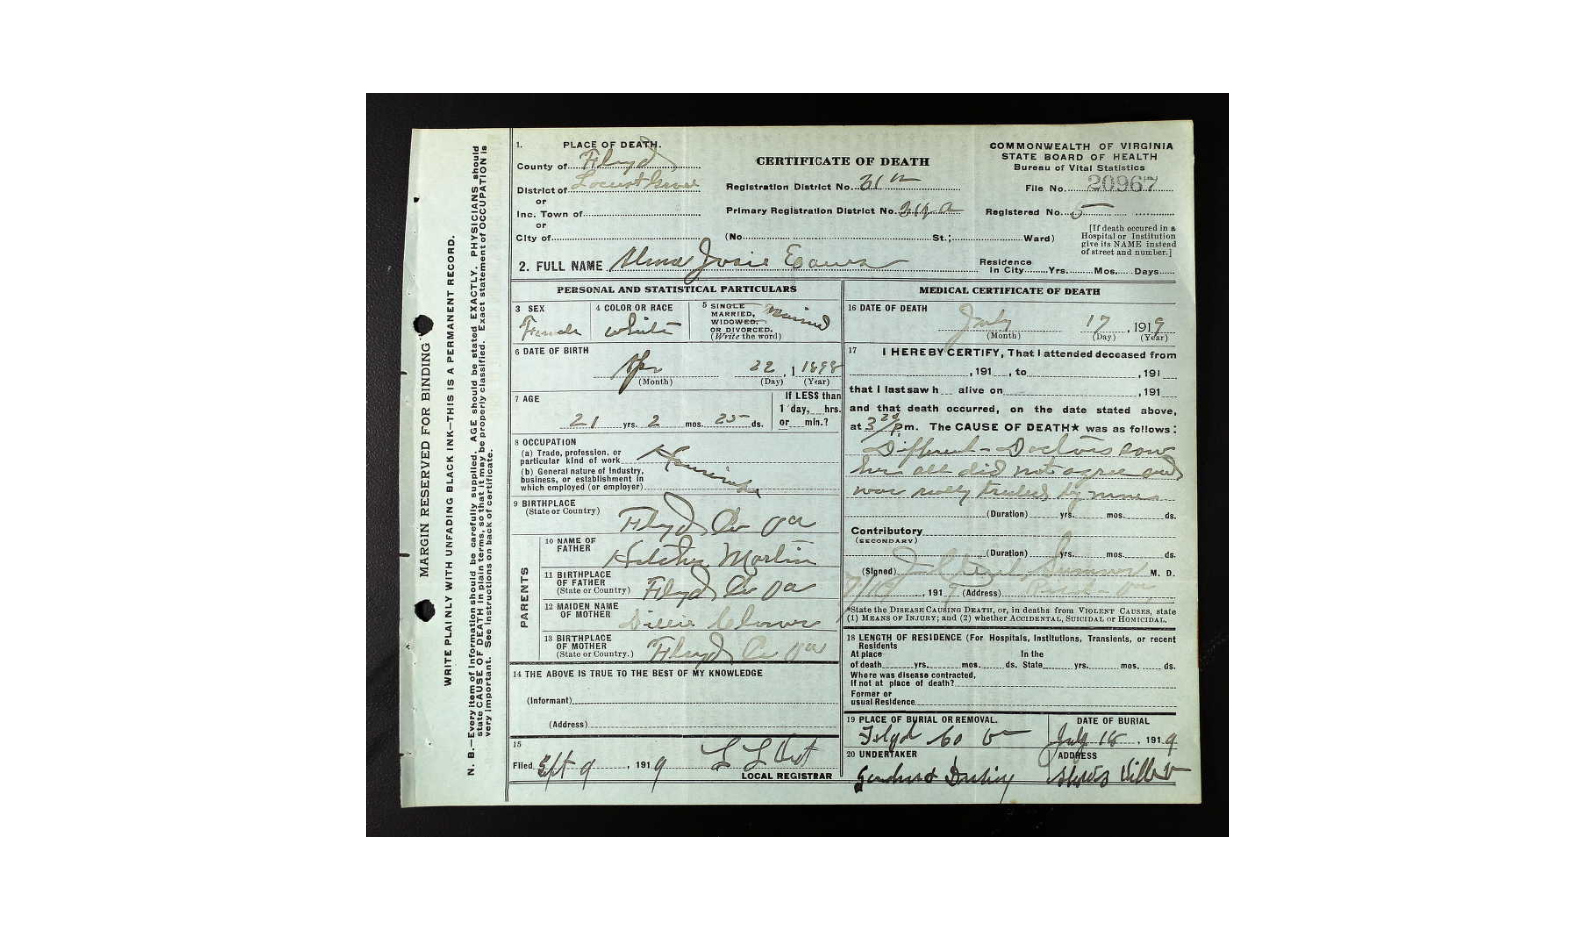 MARGIN RESERVED FOR BINDING
WRITE PLAINLY WITH UNFADING BLACK INK—THIS IS A PERMANENT RECORD.
N. B.—Every item of information should be carefully supplied. AGE should be stated EXACTLY. PHYSICIANS should
state CAUSE OF DEATH in plain terms, so that it may be properly classified. Exact statement of OCCUPATION is
very important. See instructions on back of certificate.
1. PLACE OF DEATH.
County of Floyd
District of Locust Grove
or
Inc. Town of
or
City of
CERTIFICATE OF DEATH
Registration District No. 31
Primary Registration District No.
(No St.; Ward)
COMMONWEALTH OF VIRGINIA
STATE BOARD OF HEALTH
Bureau of Vital Statistics
File No. 20967
Registered No. 5
[If death occured in a
Hospital or Institution
give its NAME instead
of street and number.]
2. FULL NAME Alma Josie
Residence
In City Yrs. Mos. Days
PERSONAL AND STATISTICAL PARTICULARS
3 SEX
Female
4 COLOR OR RACE
white
5 SINGLE
MARRIED,
WIDOWED,
OR DIVORCED.
(Write the word)
Married
6 DATE OF BIRTH
Apr 22, 1898
(Month) (Day) (Year)
7 AGE
21 yrs. 2 mos. 25 ds.
If LESS than
1 day, hrs.
or min.?
8 OCCUPATION
(a) Trade, profession, or
particular kind of work
(b) General nature of Industry,
business, or establishment in
which employed (or employer)
Housewife
9 BIRTHPLACE
(State or Country)
Floyd Co Va
PARENTS
10 NAME OF
FATHER
Martin
11 BIRTHPLACE
OF FATHER
(State or Country)
Floyd Co Va
12 MAIDEN NAME
OF MOTHER
13 BIRTHPLACE
OF MOTHER
(State or Country.)
Floyd Co Va
14 THE ABOVE IS TRUE TO THE BEST OF MY KNOWLEDGE
(Informant)
(Address)
15
Filed Sept 9, 1919
LOCAL REGISTRAR
MEDICAL CERTIFICATE OF DEATH
16 DATE OF DEATH
July 17, 1919
(Month) (Day) (Year)
17
I HEREBY CERTIFY, That I attended deceased from
, 191 , to , 191
that I last saw h alive on , 191
and that death occurred, on the date stated above,
at 3 P. m. The CAUSE OF DEATH★ was as follows:
Different Doctors saw
her all did not agree and
was
(Duration) yrs. mos. ds.
Contributory
(SECONDARY)
(Duration) yrs. mos. ds.
(Signed) M. D.
, 1919 (Address)
*State the DISEASE CAUSING DEATH, or, in deaths from VIOLENT CAUSES, state
(1) MEANS OF INJURY; and (2) whether ACCIDENTAL, SUICIDAL or HOMICIDAL.
18 LENGTH OF RESIDENCE (For Hospitals, Institutions, Transients, or recent
Residents
At place In the
of death yrs. mos. ds. State yrs. mos. ds.
Where was disease contracted,
if not at place of death?
Former or
usual Residence
19 PLACE OF BURIAL OR REMOVAL.
Floyd Co Va
DATE OF BURIAL
July 18, 1919
20 UNDERTAKER
ADDRESS